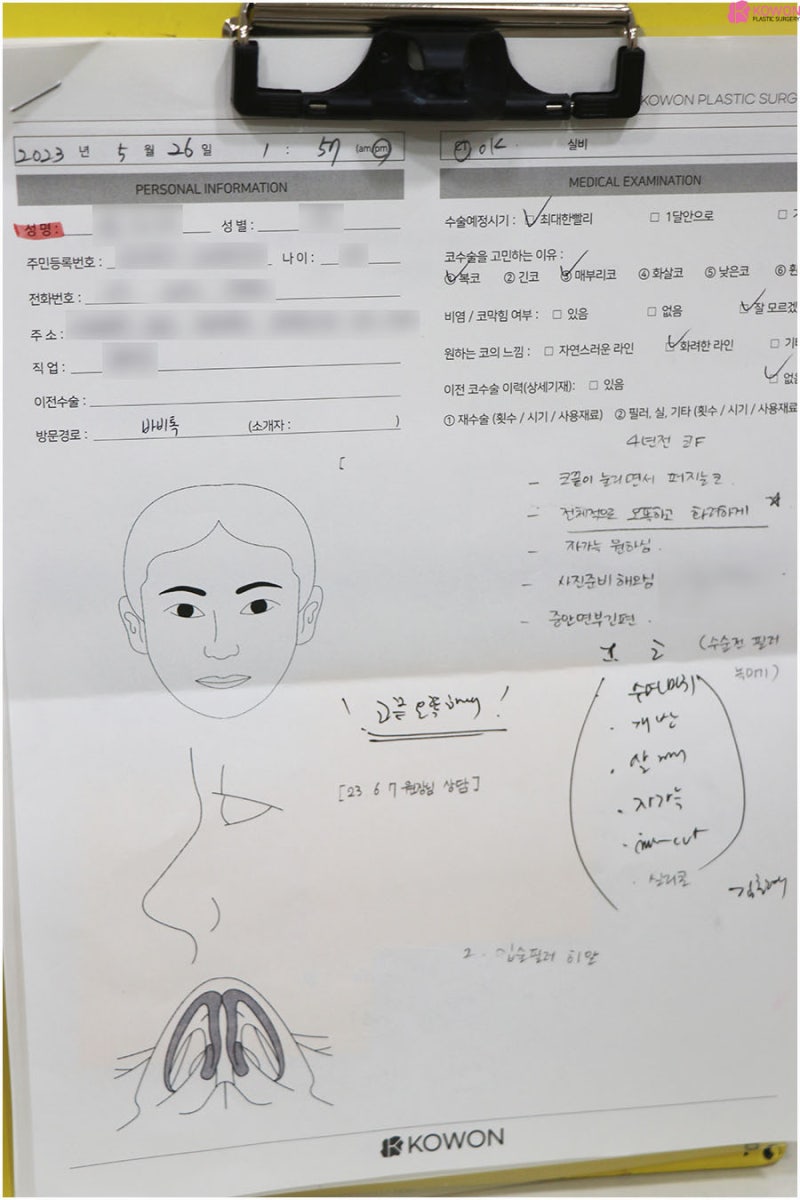 KOWON
PLASTIC SURGERY
KOWON PLASTIC SURG
2023 년 5 월 26 일 1 : 57 (am/pm)
실비
PERSONAL INFORMATION
성명 :
성별 :
주민등록번호 :
나이 :
전화번호 :
주소 :
직업 :
이전수술 :
방문경로 : 바비톡 (소개자 : )
MEDICAL EXAMINATION
수술예정시기 : 최대한빨리 1달안으로
코수술을 고민하는 이유 :
① 복코 ② 긴코 ③ 매부리코 ④ 화살코 ⑤ 낮은코 ⑥
비염 / 코막힘 여부 : 있음 없음 잘 모르겠
원하는 코의 느낌 : 자연스러운 라인 화려한 라인 기타
이전 코수술 이력(상세기재): 있음 없음
① 재수술 (횟수 / 시기 / 사용재료) ② 필러, 실, 기타 (횟수 / 시기 / 사용재료
4년전 코F
- 코끝이 눌리면서 퍼지는코
- 전체적으로 오똑하고 화려하게
- 자가늑 원하심.
- 사진준비 해오심
- 중안면부긴편.
(수술전 필러
녹이기)
수면마취
· 개방
· 자가늑
· 실리콘
코끝 오똑하게!
[23 6 7 원장님 상담]
2. 입술필러 1회
KOWON